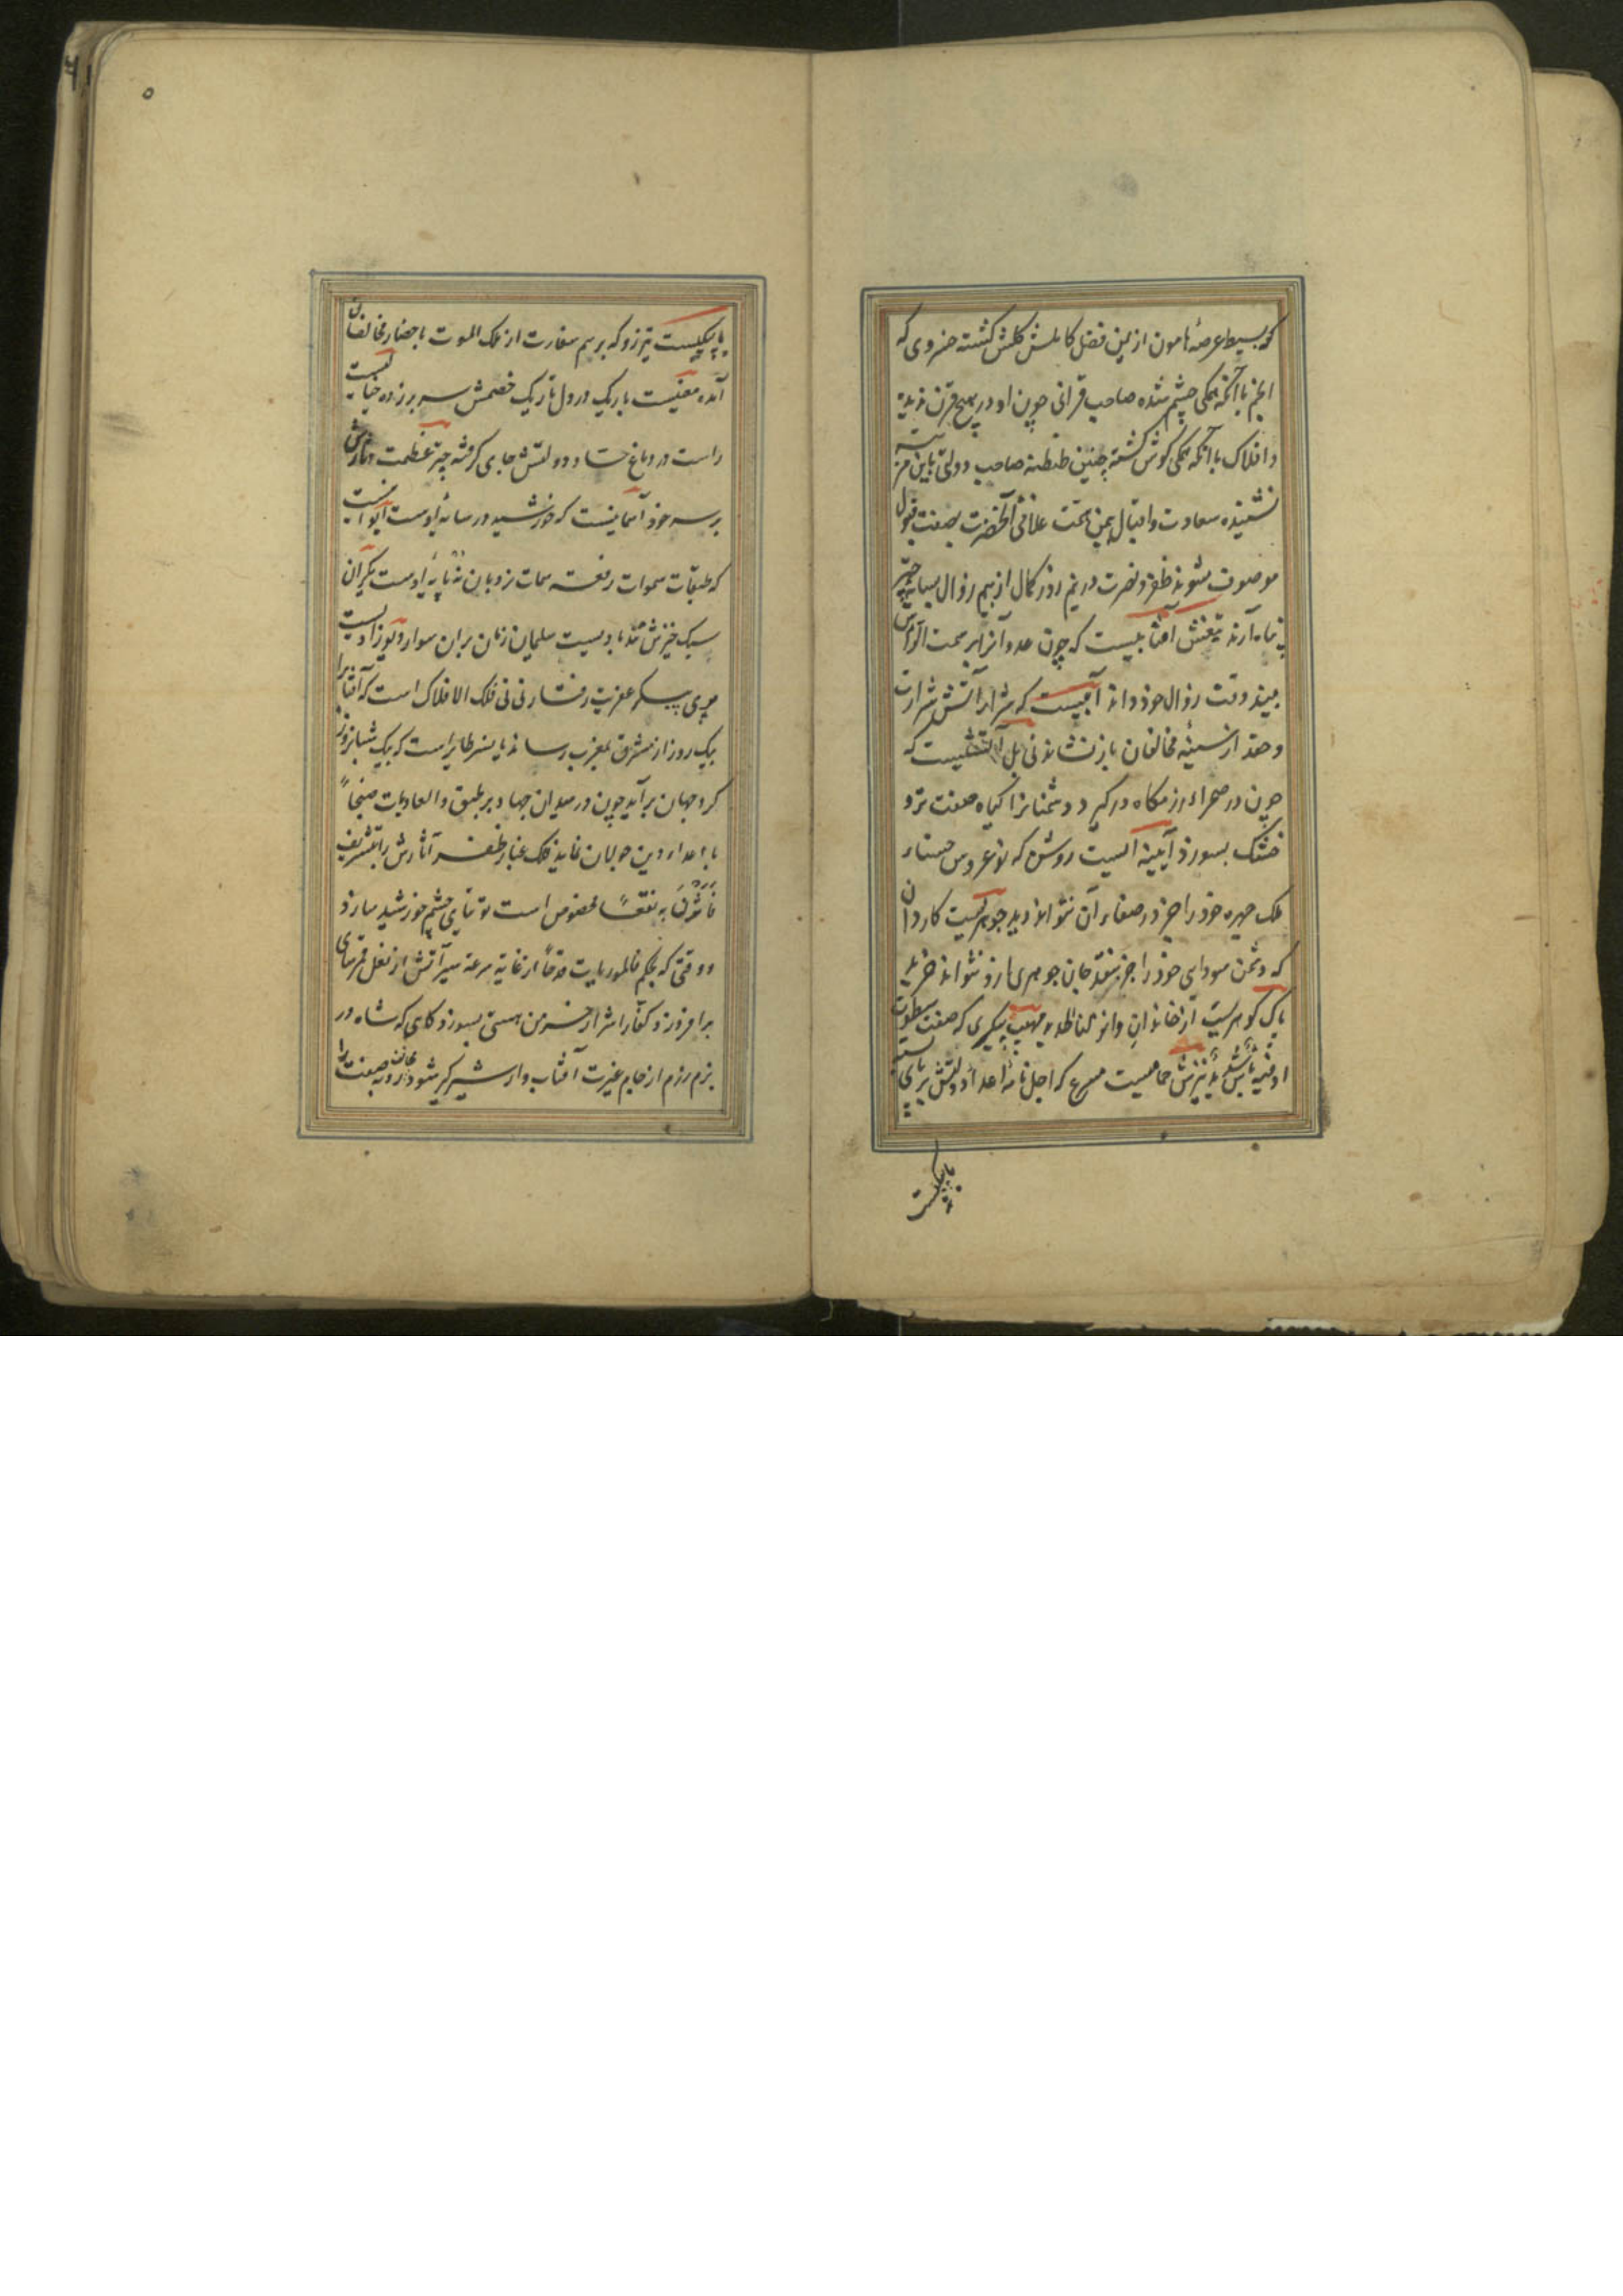 که بسیط عرصهٔ هامون از یمن فضل کاملش گلشن گشته خسروی که
انجم با آنکه همگی چشم شده صاحب قرانی چون او در هیچ قرن ندیده
و افلاک با آنکه همگی گوش گشته چنین طنطنه صاحب دولتی باین مرتبه
نشنیده سعادت و اقبال بیمن همت علافی آنحضرت بصفت قبول
موصوف شوند ظفر و نصرت در نیم روز کمال از بیم زوال بسایه چتر
پناه آرند تیغش آفتابیست که چون عدو آنرا بر سمت الرأس
بیند وقت زوال خود داند آبیست که شرار آتش شرارت
و حقد از سینهٔ مخالفان باز نشاند نی بل آتشیست که
چون در صحراء رزمگاه درگیرد دشمنانرا گیاه صفت تر و
خشک بسوزد آیینه ایست روشن که نوعروس
ملک چهره خود را جز در صفاء آن نتواند دید جوهریست کاردان
که دشمن سودای خود را جز بنقد جان جوهری ازو نتواند خرید
پاک گوهریست از خاندان و انزلنا الحدید مهیب پیکری که صفت سطوت
او فیه بأس شدید تیرش حمامیست مسرع که اجل نامهٔ اعداء دولتش بر پای بسته
یا پیکیست
یا پیکیست تیز رو که برسم سفارت از ملک الموت باحضار مخالفان
آمده معنیست باریک در دل تاریک خصمش سر بر زده خیالیست
راست در دماغ حساد دولتش جای گرفته چتر عظمت دثارش
بر سر خود آسمانیست که خورشید در سایهٔ اوست ایوانیست
که طبقات سموات رفعت سمات نردبان نه پایهٔ اوست یکران
سبک خیزش تند بادیست سلیمان زمان بران سوار و دیوزادیست
پری پیکر عفریت رفتار نی نی فلک الافلاک است که آفتابرا
بیک روز از مشرق بمغرب رساند یا نسر طایر است که بیک شبانروز
گرد جهان برآید چون در میدان جهاد بر طبق و العادیات ضبحاً
با اعداء دین جولان نماید فلک غبار ظفر آثارش را بتشریف
فَأَثَرْنَ به نقعاً مخصوص است توتیای چشم خورشید سازد
و وقتی که بحکم فالموریات قدحاً از غایة سرعة سیر آتش از نعل قمرسای
برافروزد کفار را شرار خرمن هستی بسوزد گاهی که شاه در
بزم رزم از جام غیرت آفتاب وار شیر گیر شود صفت را
۵